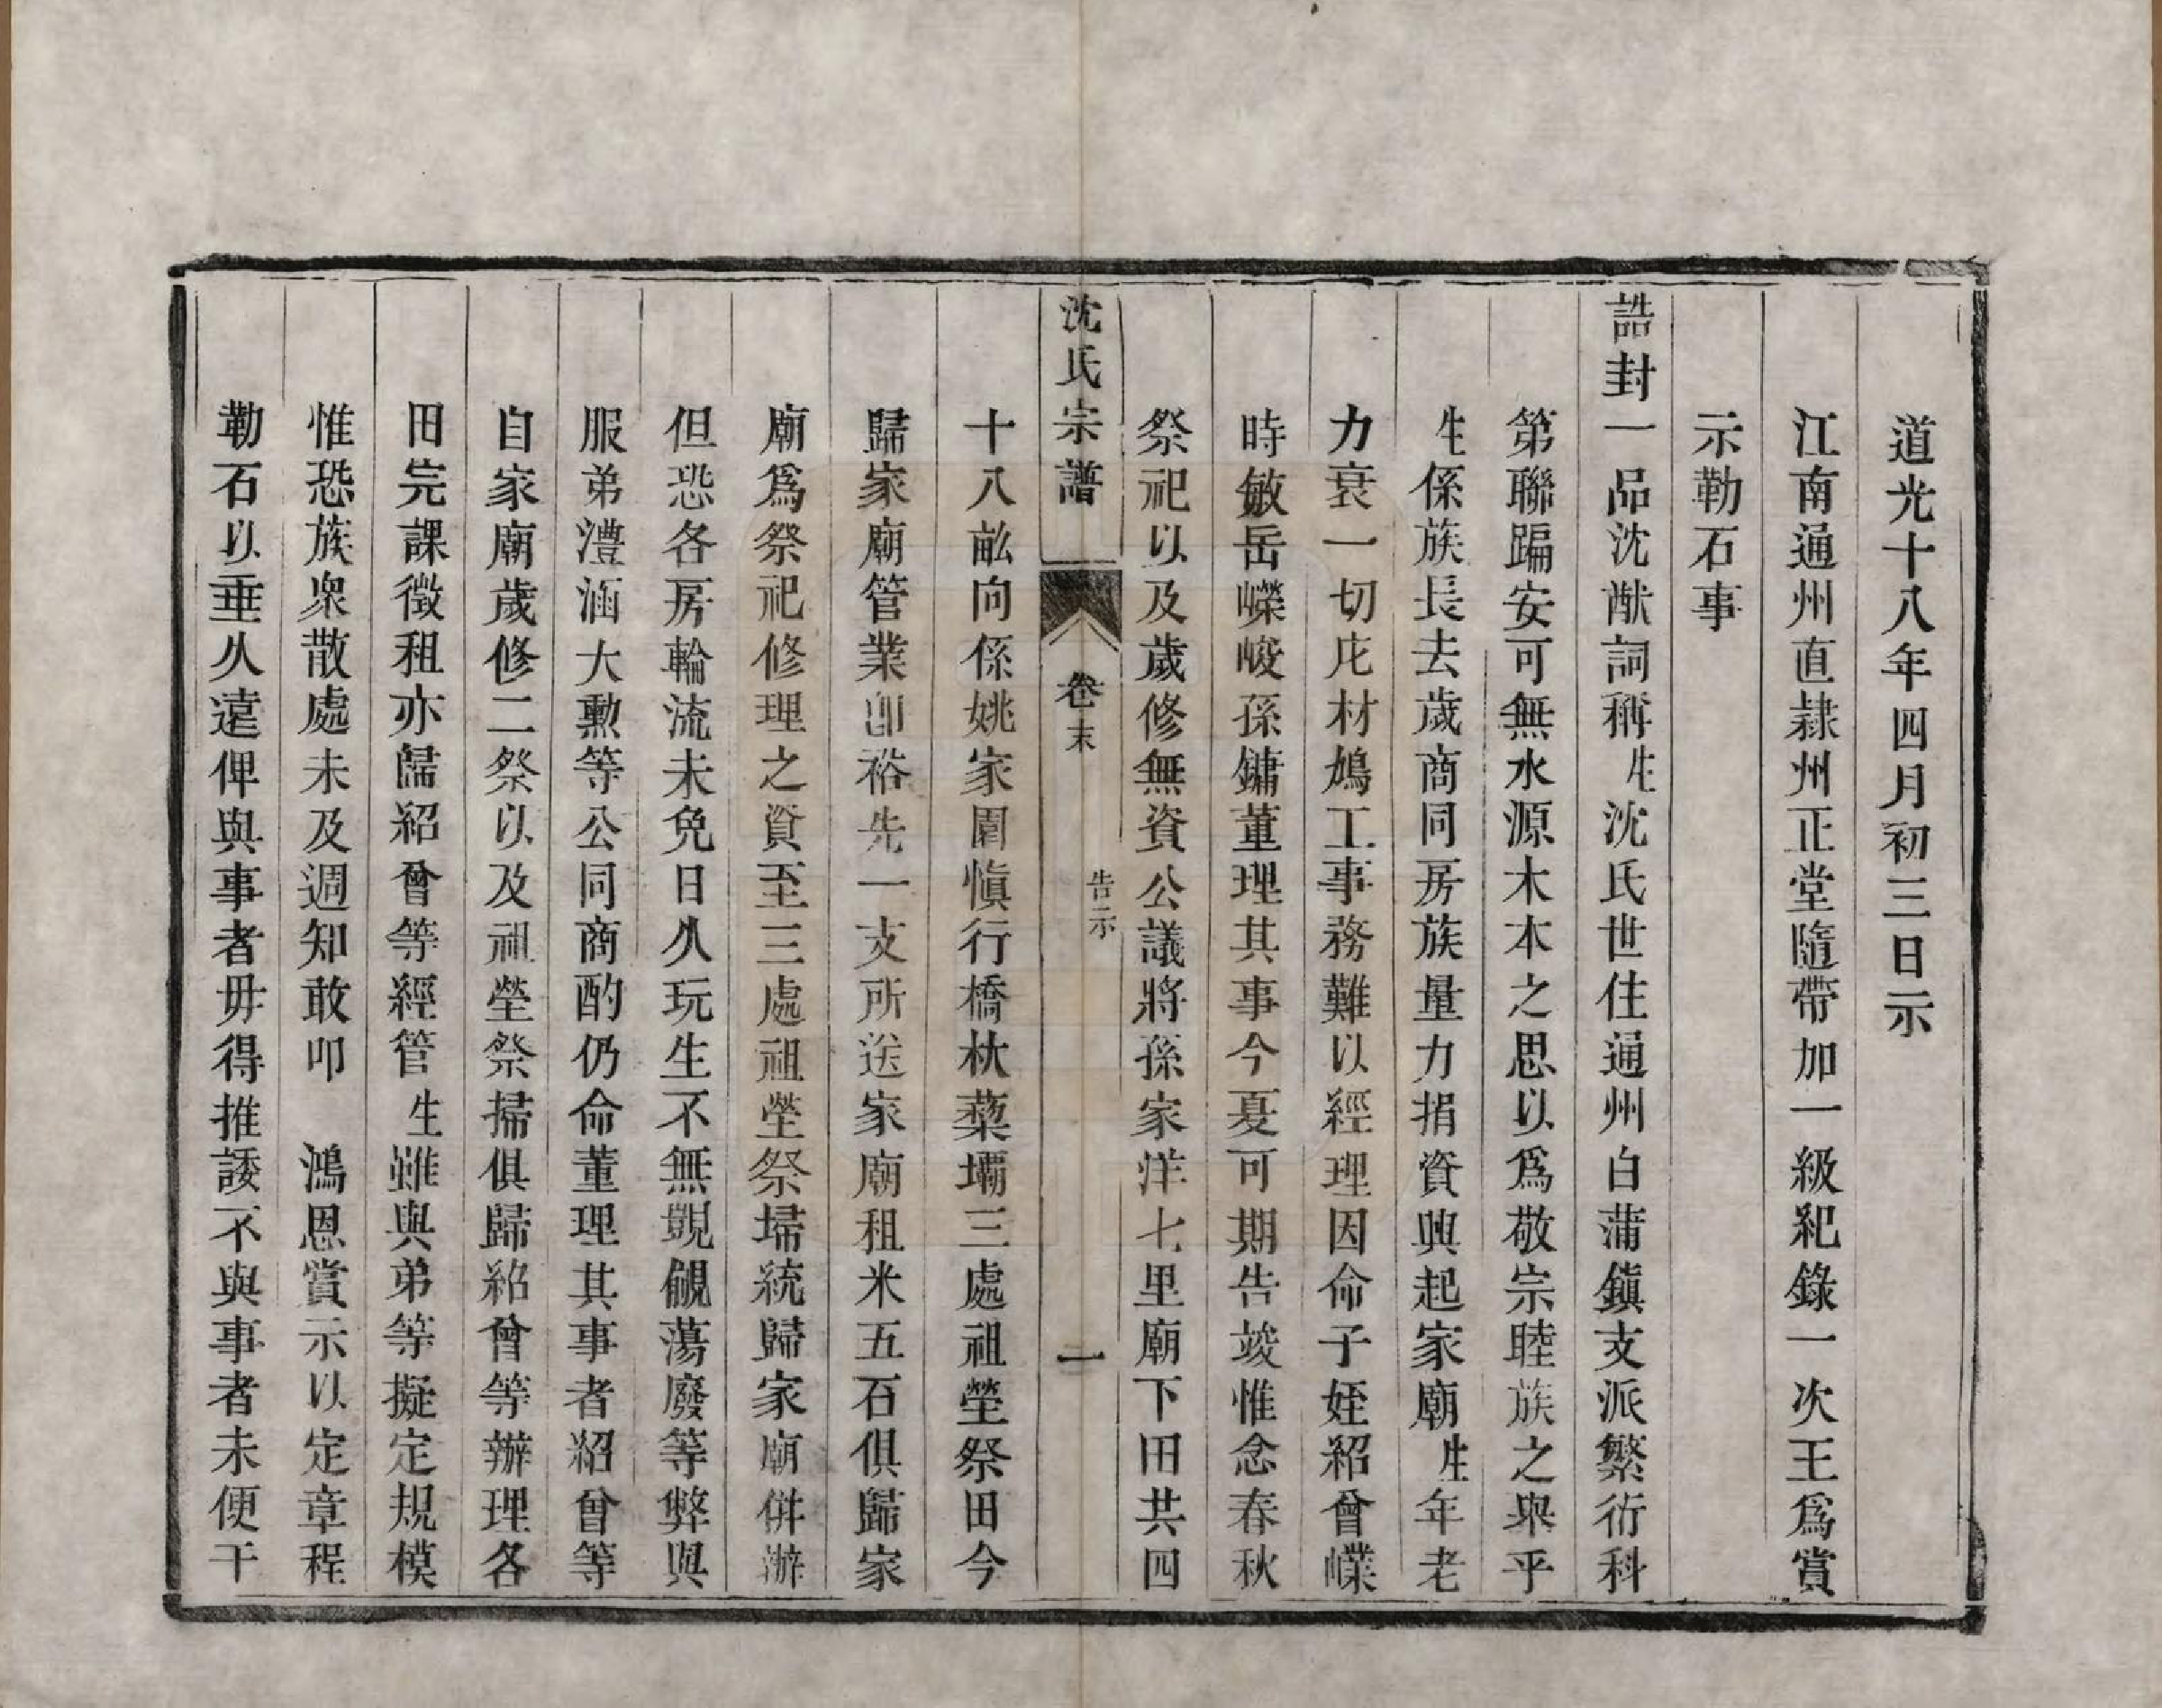 道光十八年四月初三日示
江南通州直隸州正堂隨帶加一級紀錄一次王爲賞
示勒石事
誥封一品沈猷詞稱生沈氏世住通州白蒲鎭支派繁衍科
第聯蹁安可無水源木本之思以爲敬宗睦族之舉乎
生係族長去歲商同房族量力捐資興起家廟生年老
力衰一切庀材鳩工事務難以經理因命子姪紹曾㠎
時敏岳嶸峻孫鏞董理其事今夏可期告竣惟念春秋
祭祀以及歲修無資公議將孫家洋七里廟下田共四
沈氏宗譜
卷末
告示
一
十八畝向係姚家園愼行橋林蕖壩三處祖塋祭田今
歸家廟管業卽裕先一支所送家廟租米五石俱歸家
廟爲祭祀修理之資至三處祖塋祭埽統歸家廟併辦
但恐各房輪流未免日久玩生不無覬覦蕩廢等弊與
服弟澧涵大勳等公同商酌仍命董理其事者紹曾等
自家廟歲修二祭以及祖塋祭掃俱歸紹曾等辦理各
田完課徵租亦歸紹曾等經管生雖與弟等擬定規模
惟恐族衆散處未及週知敢叩　鴻恩賞示以定章程
勒石以垂久遠俾與事者毋得推諉不與事者未便干